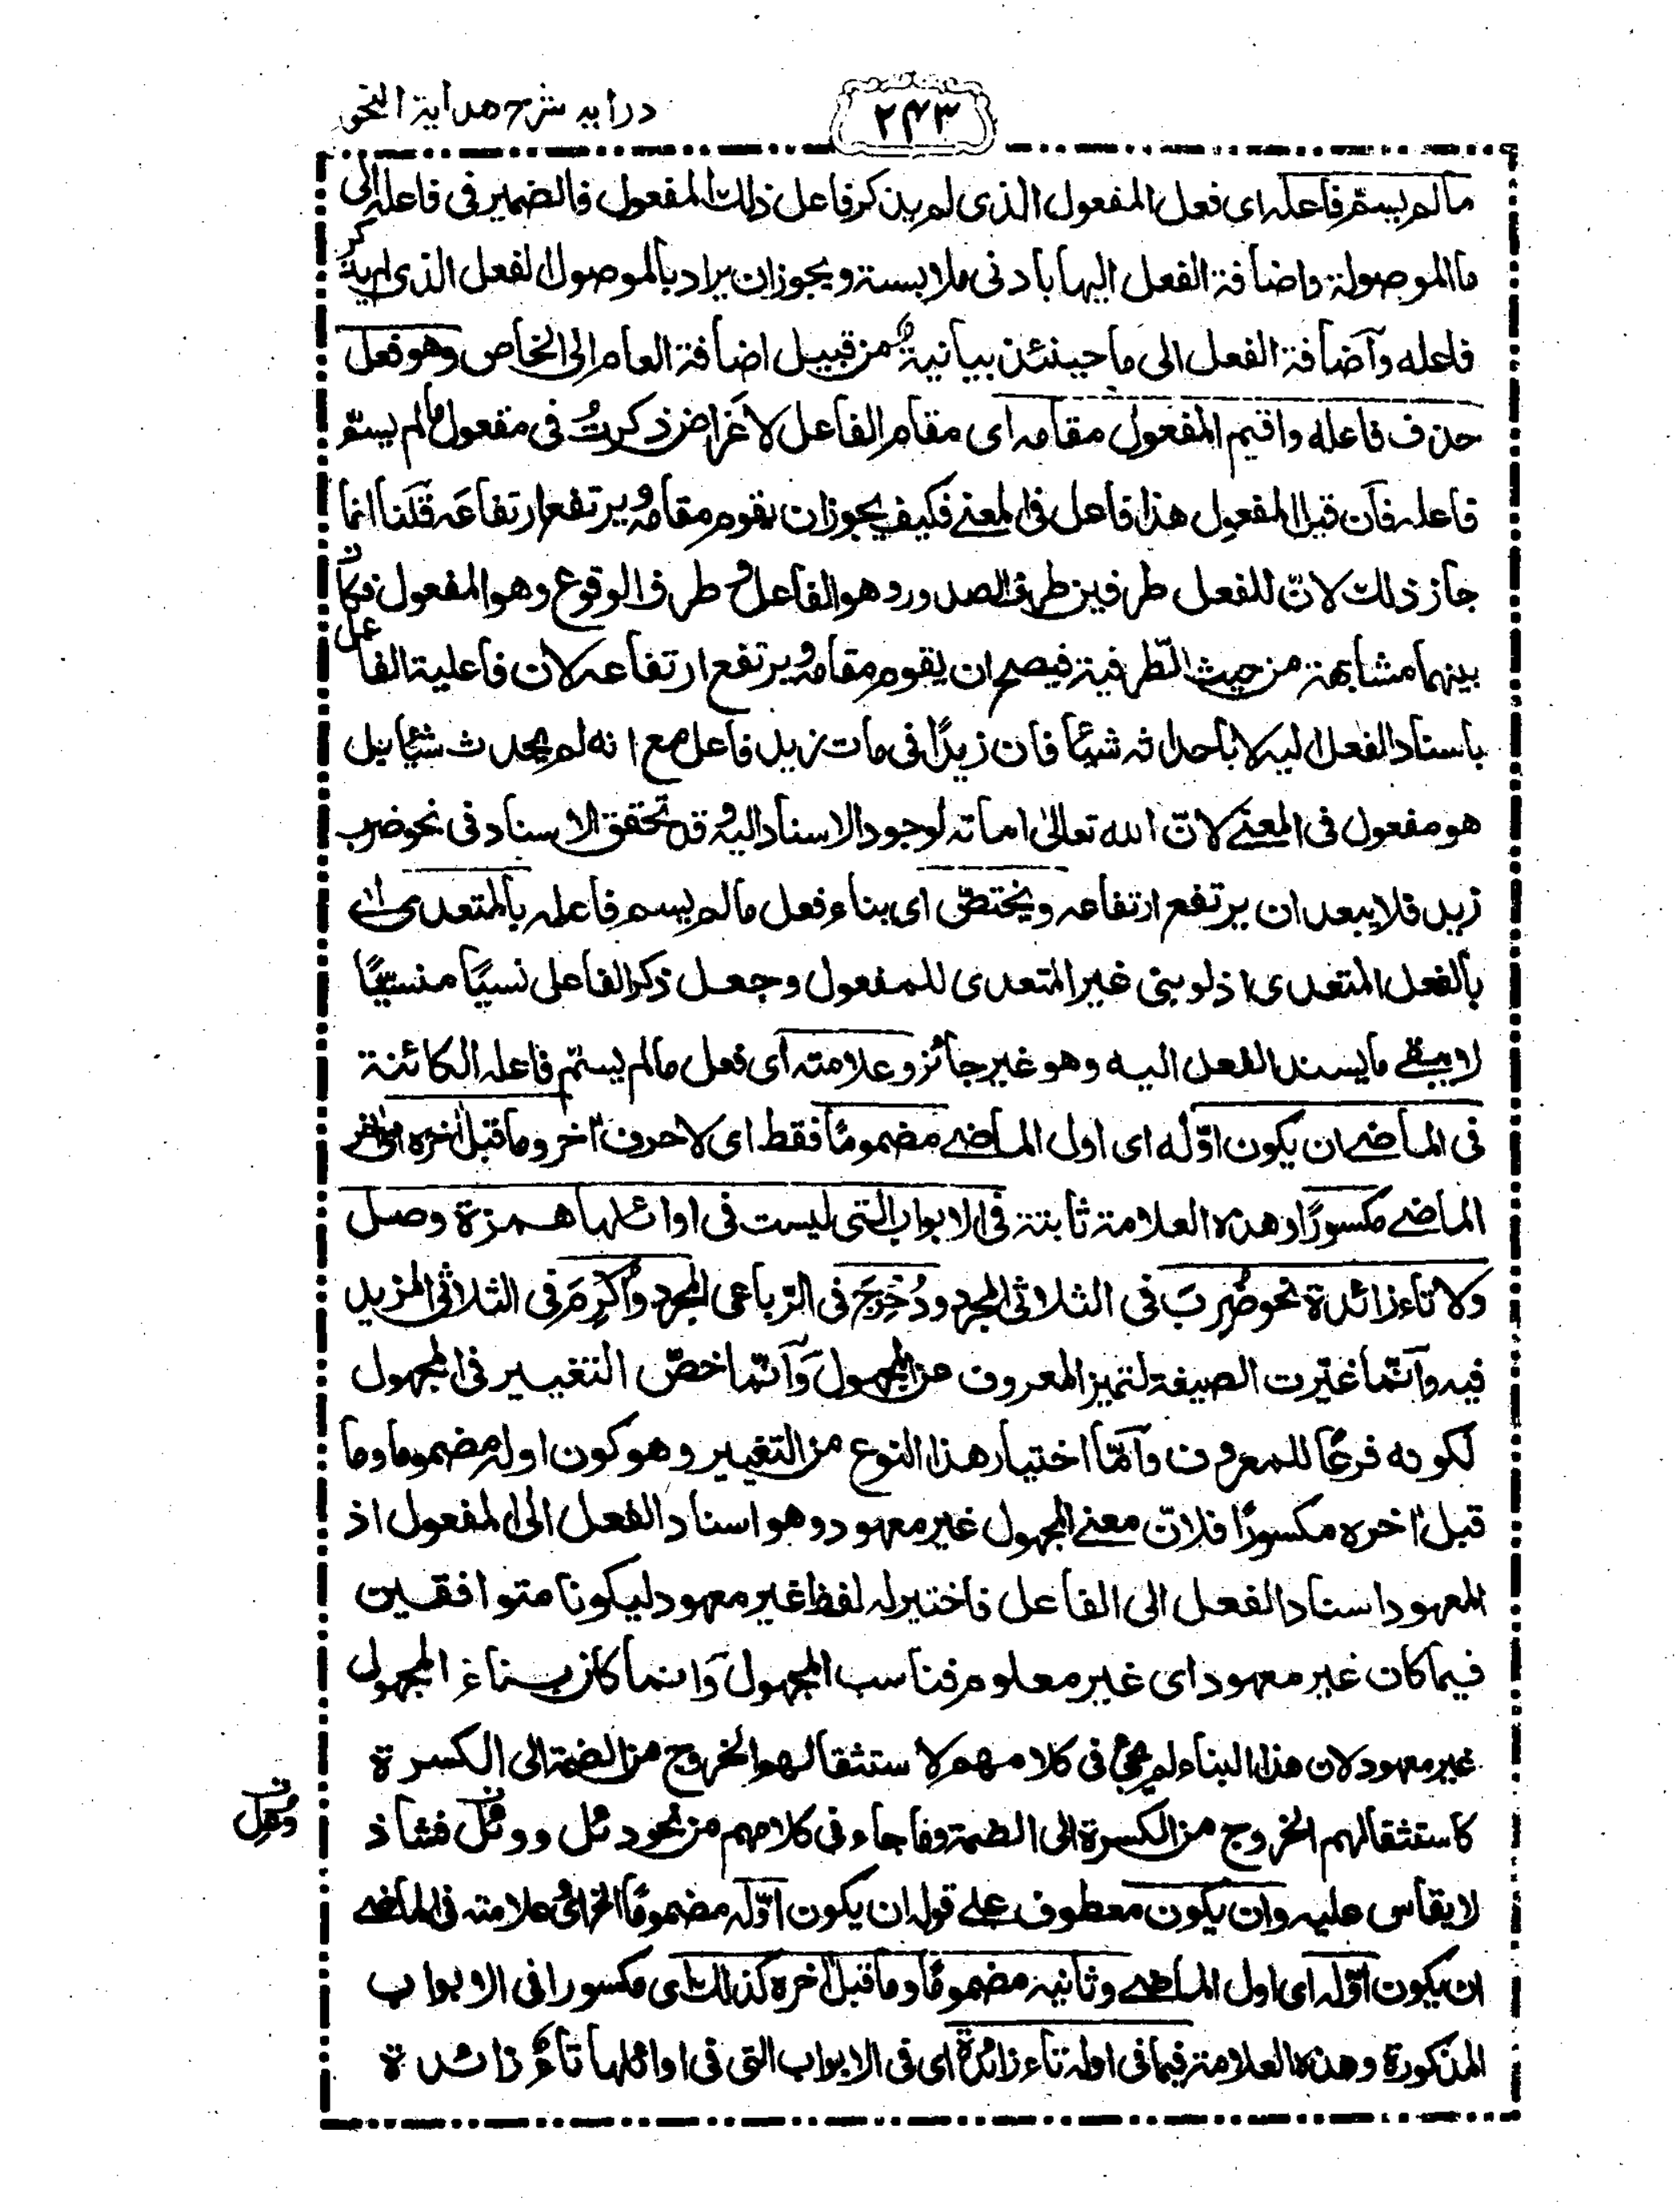 درايه شرح هداية النحو
٢٤٣
مالم يسمّ فاعله اى فعل المفعول الذى لم يذكر فاعل ذلك المفعول فالضمير فى فاعله الى
ما الموصولة واضافة الفعل اليها بادنى ملابسة ويجوز ان يراد بالموصول الفعل الذى لم يذكر
فاعله وآضافة الفعل الى ما حينئذ بيانية من قبيل اضافة العام الى الخاص وهو فعل
حذف فاعله واقيم المفعول مقامه اى مقام الفاعل لاغراض ذكرتُ فى مفعول مالم يسمّ
فاعله فآن قيل المفعول هذا فاعل فى المعنے فكيف يجوز ان يقوم مقامه ويرتفع ارتفاعه قلنا انما
جاز ذلك لانّ للفعل طرفين طرف الصدور وهو الفاعل و طرف الوقوع وهو المفعول فكان
بينهما مشابهة من حيث الطّرفية فيصح ان يقوم مقامه ويرتفع ارتفاعه لان فاعلية الفاعل
باسناد الفعل اليه لا باحداثه شيئًا فان زيدًا فى مات زيد فاعل مع انه لم يحدث شيئا بل
هو مفعول فى المعنے لانّ الله تعالىٰ اماته لوجود الاسناد اليه وقد تحقق الاسناد فى نحو ضرب
زيد فلا يبعد ان يرتفع ارتفاعه ويختصّ اى بناء فعل مالم يسم فاعله بالمتعدى اى
بالفعل المتعدى اذ لو بنى غير المتعدى للمفعول وجعل ذكر الفاعل نسيًا منسيًّا
لا يبقے ما يسند الفعل اليه وهو غير جائز وعلامته اى فعل مالم يسمّ فاعله الكائنة
فى الماضے ان يكون اوّله اى اول الماضے مضمومًا فقط اى لا حرف آخر وما قبل اٰخره اى اٰخر
الماضے مكسورًا وهذه العلامة ثابتة فى الابواب التى ليست فى اوائلها همزة وصل
ولا تاء زائدة نحو ضُرِبَ فى الثلاثى المجرد ودُحْرِجَ فى الرّباعى المجرد وأُكْرِمَ فى الثلاثى المزيد
فيه وآنّما غيّرت الصيغة لتميز المعروف عن المجهول وَآنّما خصّ التغيير فى المجهول
لكونه فرعًا للمعروف وآمّا اختيار هذا النوع من التغيير وهو كون اوله مضموما وما
قبل اٰخره مكسورًا فلانّ معنے المجهول غير معهود وهو اسناد الفعل الى المفعول اذ
المعهود اسناد الفعل الى الفاعل فاختير له لفظ غير معهود ليكونا متوافقين
فيما كان غير معهود اى غير معلوم فناسب المجهول وَانما كان بناء المجهول
غير معهود لان هذا البناء لم يجئ فى كلامهم لاستثقالهم الخروج من الضمة الى الكسرة
كاستثقالهم الخروج من الكسرة الى الضمة وفا جاء فى كلامهم من نحو دئل و وئل فشاذ
وعِل
لا يقاس عليه وان يكون معطوف علے قوله ان يكون اوّله مضمومًا الخ اى علامته فى الماضے
ان يكون اوّله اى اول الماضے وثانيه مضمومًا وما قبل اٰخره كذلك اى مكسورا فى الابواب
المذكورة وهذه العلامة فيما فى اوله تاء زائدة اى فى الابواب التى فى اوائلها تاءٌ زائدة